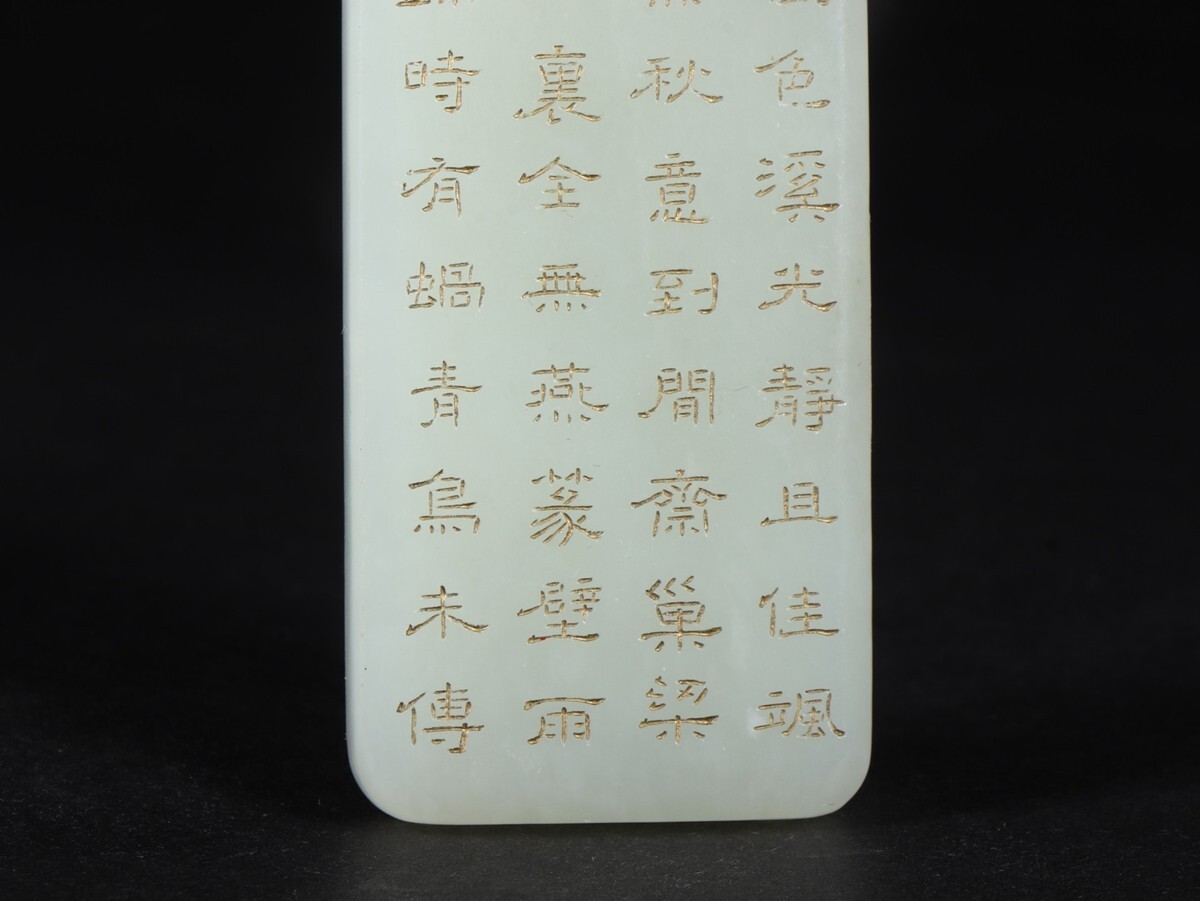 色溪光靜且佳颯
秋意到間齋巢梁
裏全無燕篆壁雨
時有蝸青鳥未傳